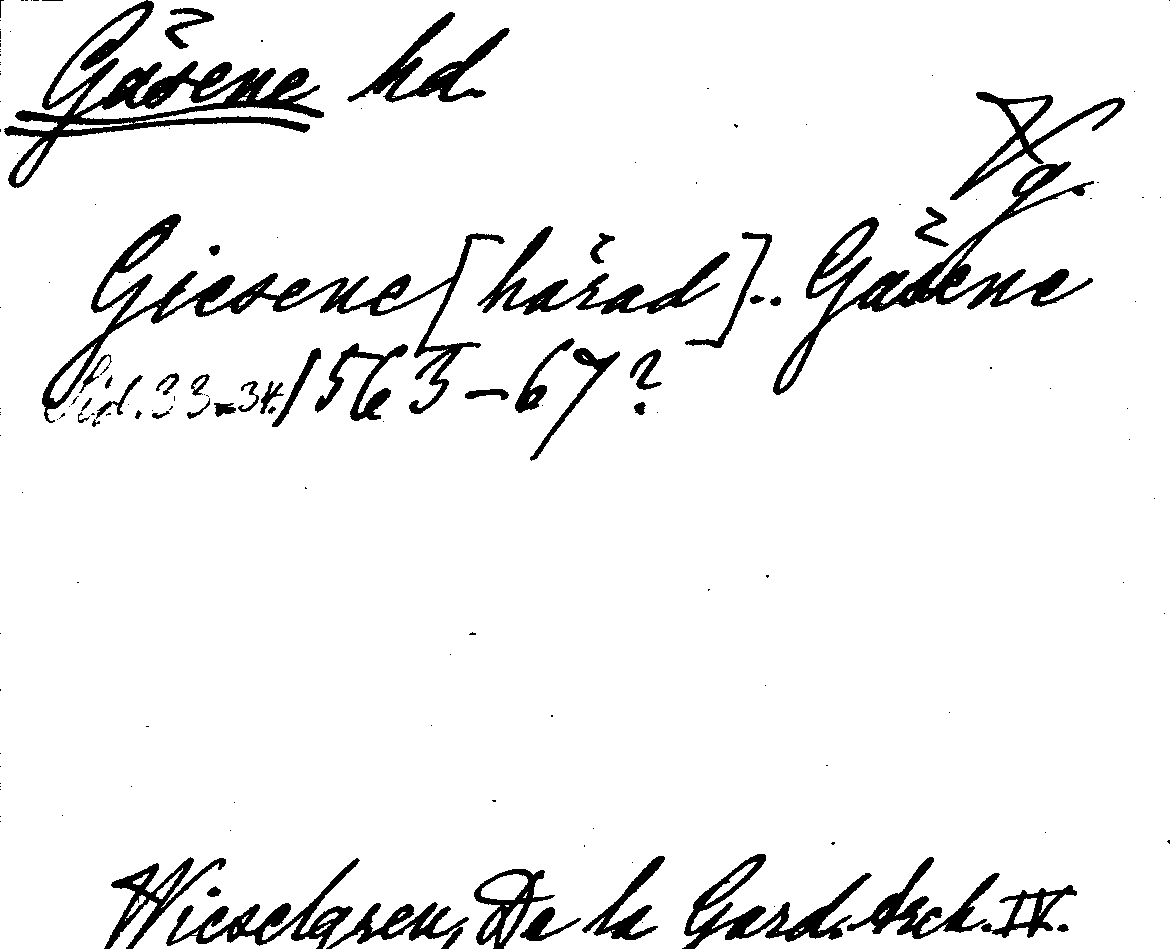 Gäsene hd.
Vg.
Giesene [härad].. Gäsene
Sid. 33-34. 1563-67?
Wieselgren, De la Gard. Arch. IV.